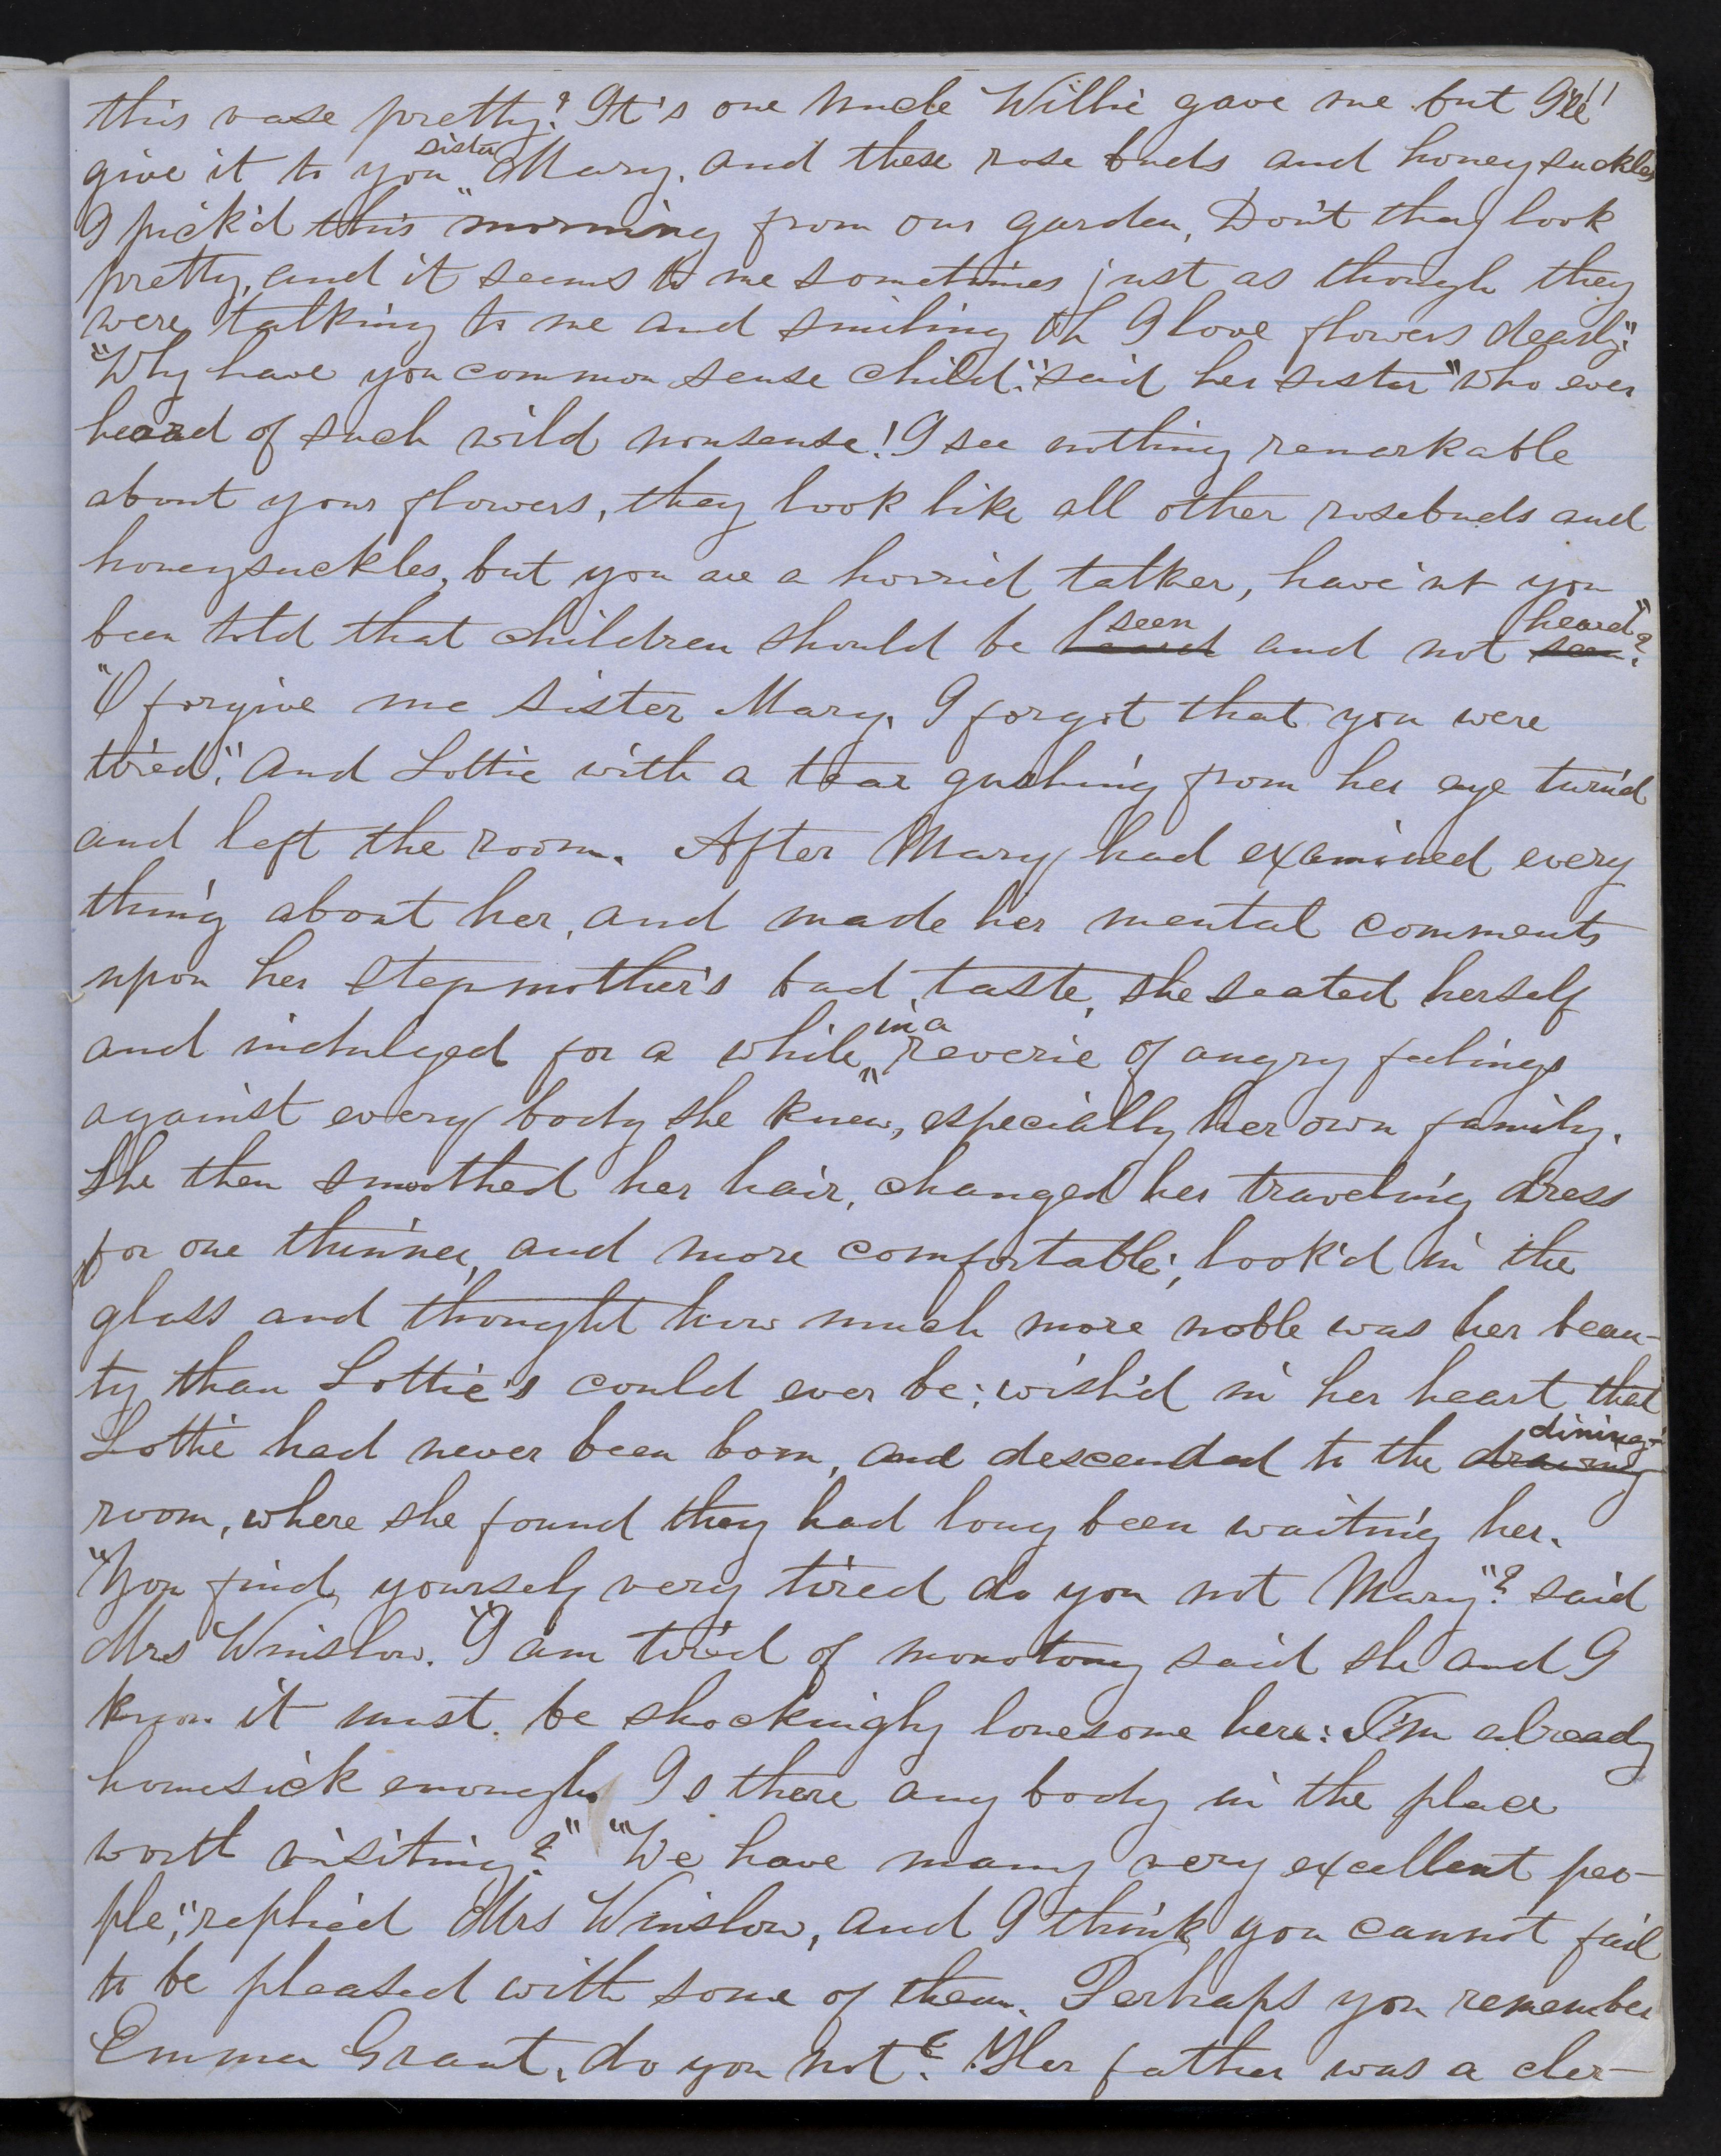 this vase pretty? It's one Uncle Willie gave me but I'll
give it to you sister Mary, and these rose buds and honeysuckles
I pick'd this morning from our garden, Don't they look
pretty, and it seems to me sometimes just as though they
were talking to me and smiling Oh I love flowers dearly."
"Why have you common sense child." said her sister "who ever
heard of such wild nonsense! I see nothing remarkable
about your flowers, they look like all other rosebuds and
honeysuckles, but you are a horrid talker, have'nt you
been told that children should be heard seen and not seen heard"?
"O forgive me sister Mary, I forgot that you were
tired." And Lottie with a tear gushing from her eye turn'd
and left the room. After Mary had examined every
thing about her, and made her mental comments
upon her stepmother's bad taste, she seated herself
and indulged for a while in a reverie of angry feelings
against every body she knew, especially her own family.
She then smoothed her hair, changed her traveling dress
for one thinner, and more comfortable; look'd in the
glass and thought how much more noble was her beau-
ty than Lottie's could ever be; wish'd in her heart that
Lottie had never been born, and descended to the drawing dining-
room, where she found they had long been waiting her.
"You find yourself very tired do you not Mary"? said
Mrs Winslow. "I am tired of monotony said she and I
know it must be shockingly lonesome here: I'm already
homesick enough. Is there any body in the place
worth visiting?" "We have many very excellent peo-
ple," replied Mrs Winslow, and I think you cannot fail
to be pleased with some of them. Perhaps you remember
Emma Grant, do you not? Her father was a cler-